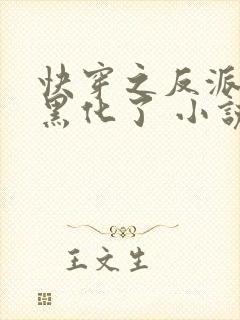 快穿之反派
黑化了 小说
王文生